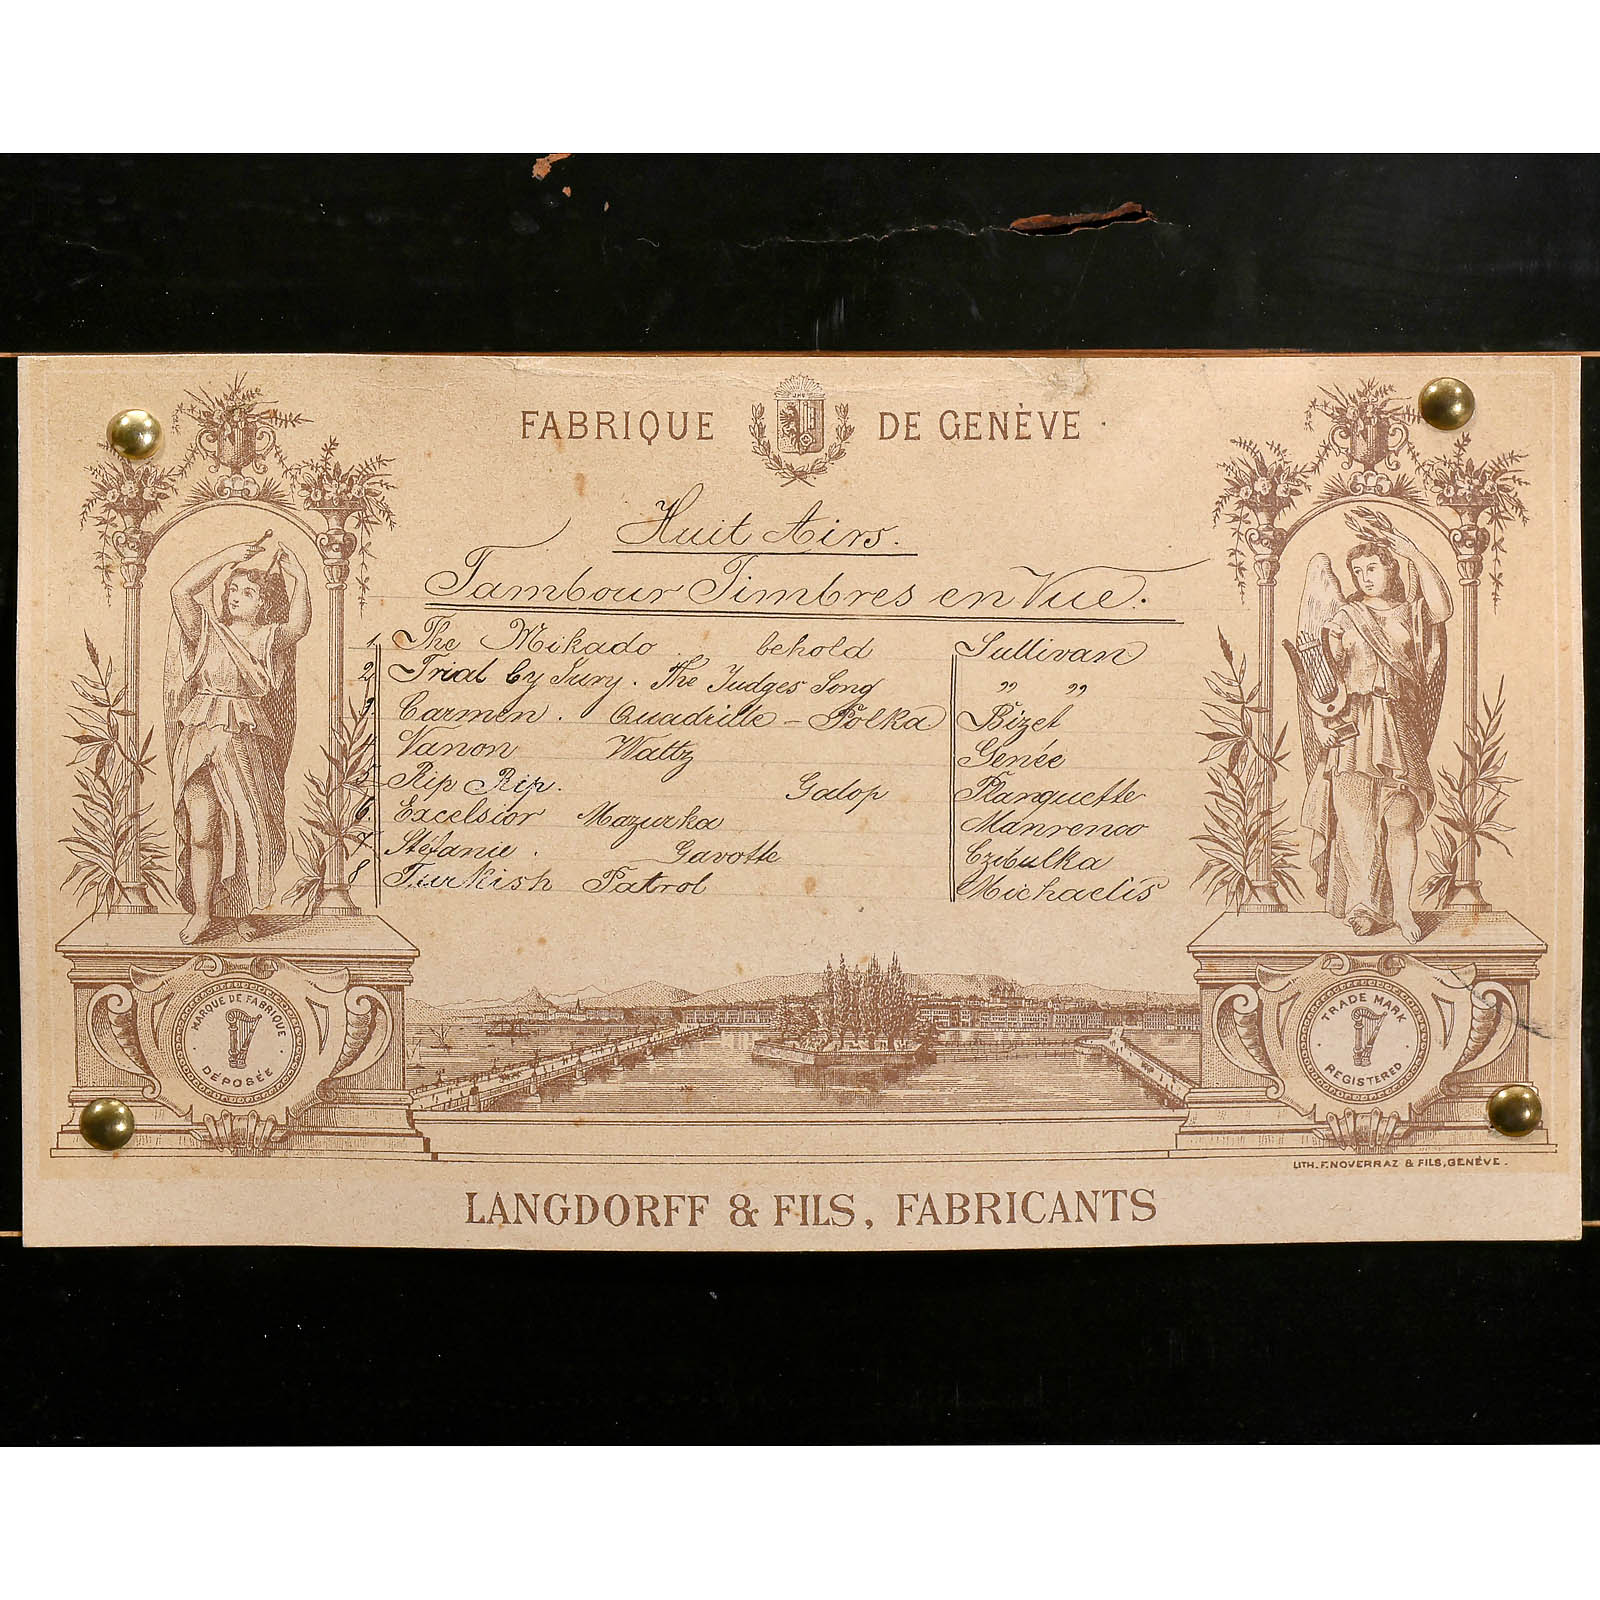 FABRIQUE DE GENÈVE
Huit Airs.
Tambour Timbres en Vue.
1. The Mikado. behold Sullivan
2. Trial by Jury. The Judges Song " "
3. Carmen. Quadrille - Polka Bizet
4 Nanon Waltz Genée
5 Rip Rip. Galop Planquette
6. Excelsior Mazurka Manrenco
7. Stéfanie. Gavotte Czibulka
8 Turkish Patrol Michaelis
MARQUE DE FABRIQUE
DÉPOSÉE
TRADE MARK
REGISTERED
LITH. F. NOVERRAZ & FILS, GENÈVE.
LANGDORFF & FILS, FABRICANTS